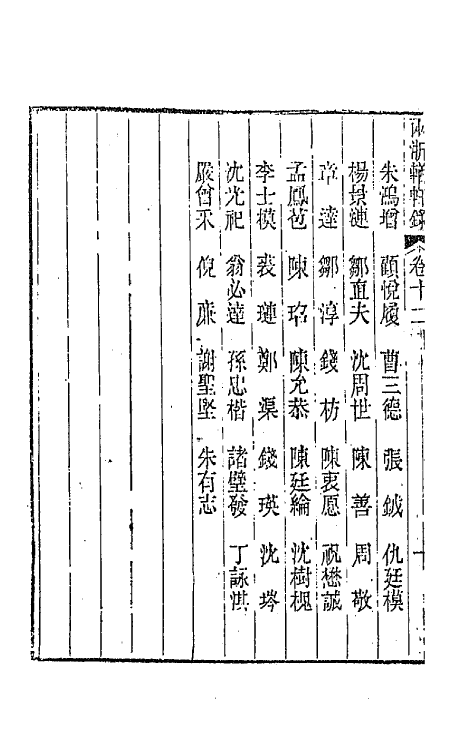 兩浙輶軒錄 卷十二
朱鴻增 顧悅履 曹三德 張鉞 仇廷模
楊景漣 鄒直夫 沈周世 陳善 周敬
章達 鄒淳 錢枋 陳衷愿 祝懋誠
孟鳳苞 陳珆 陳允恭 陳廷綸 沈樹槐
李士模 裘璉 鄭渠 錢瑛 沈埁
沈光祀 翁必達 孫忠楷 諸壁發 丁詠淇
嚴曾采 倪廉 謝聖堅 朱有志